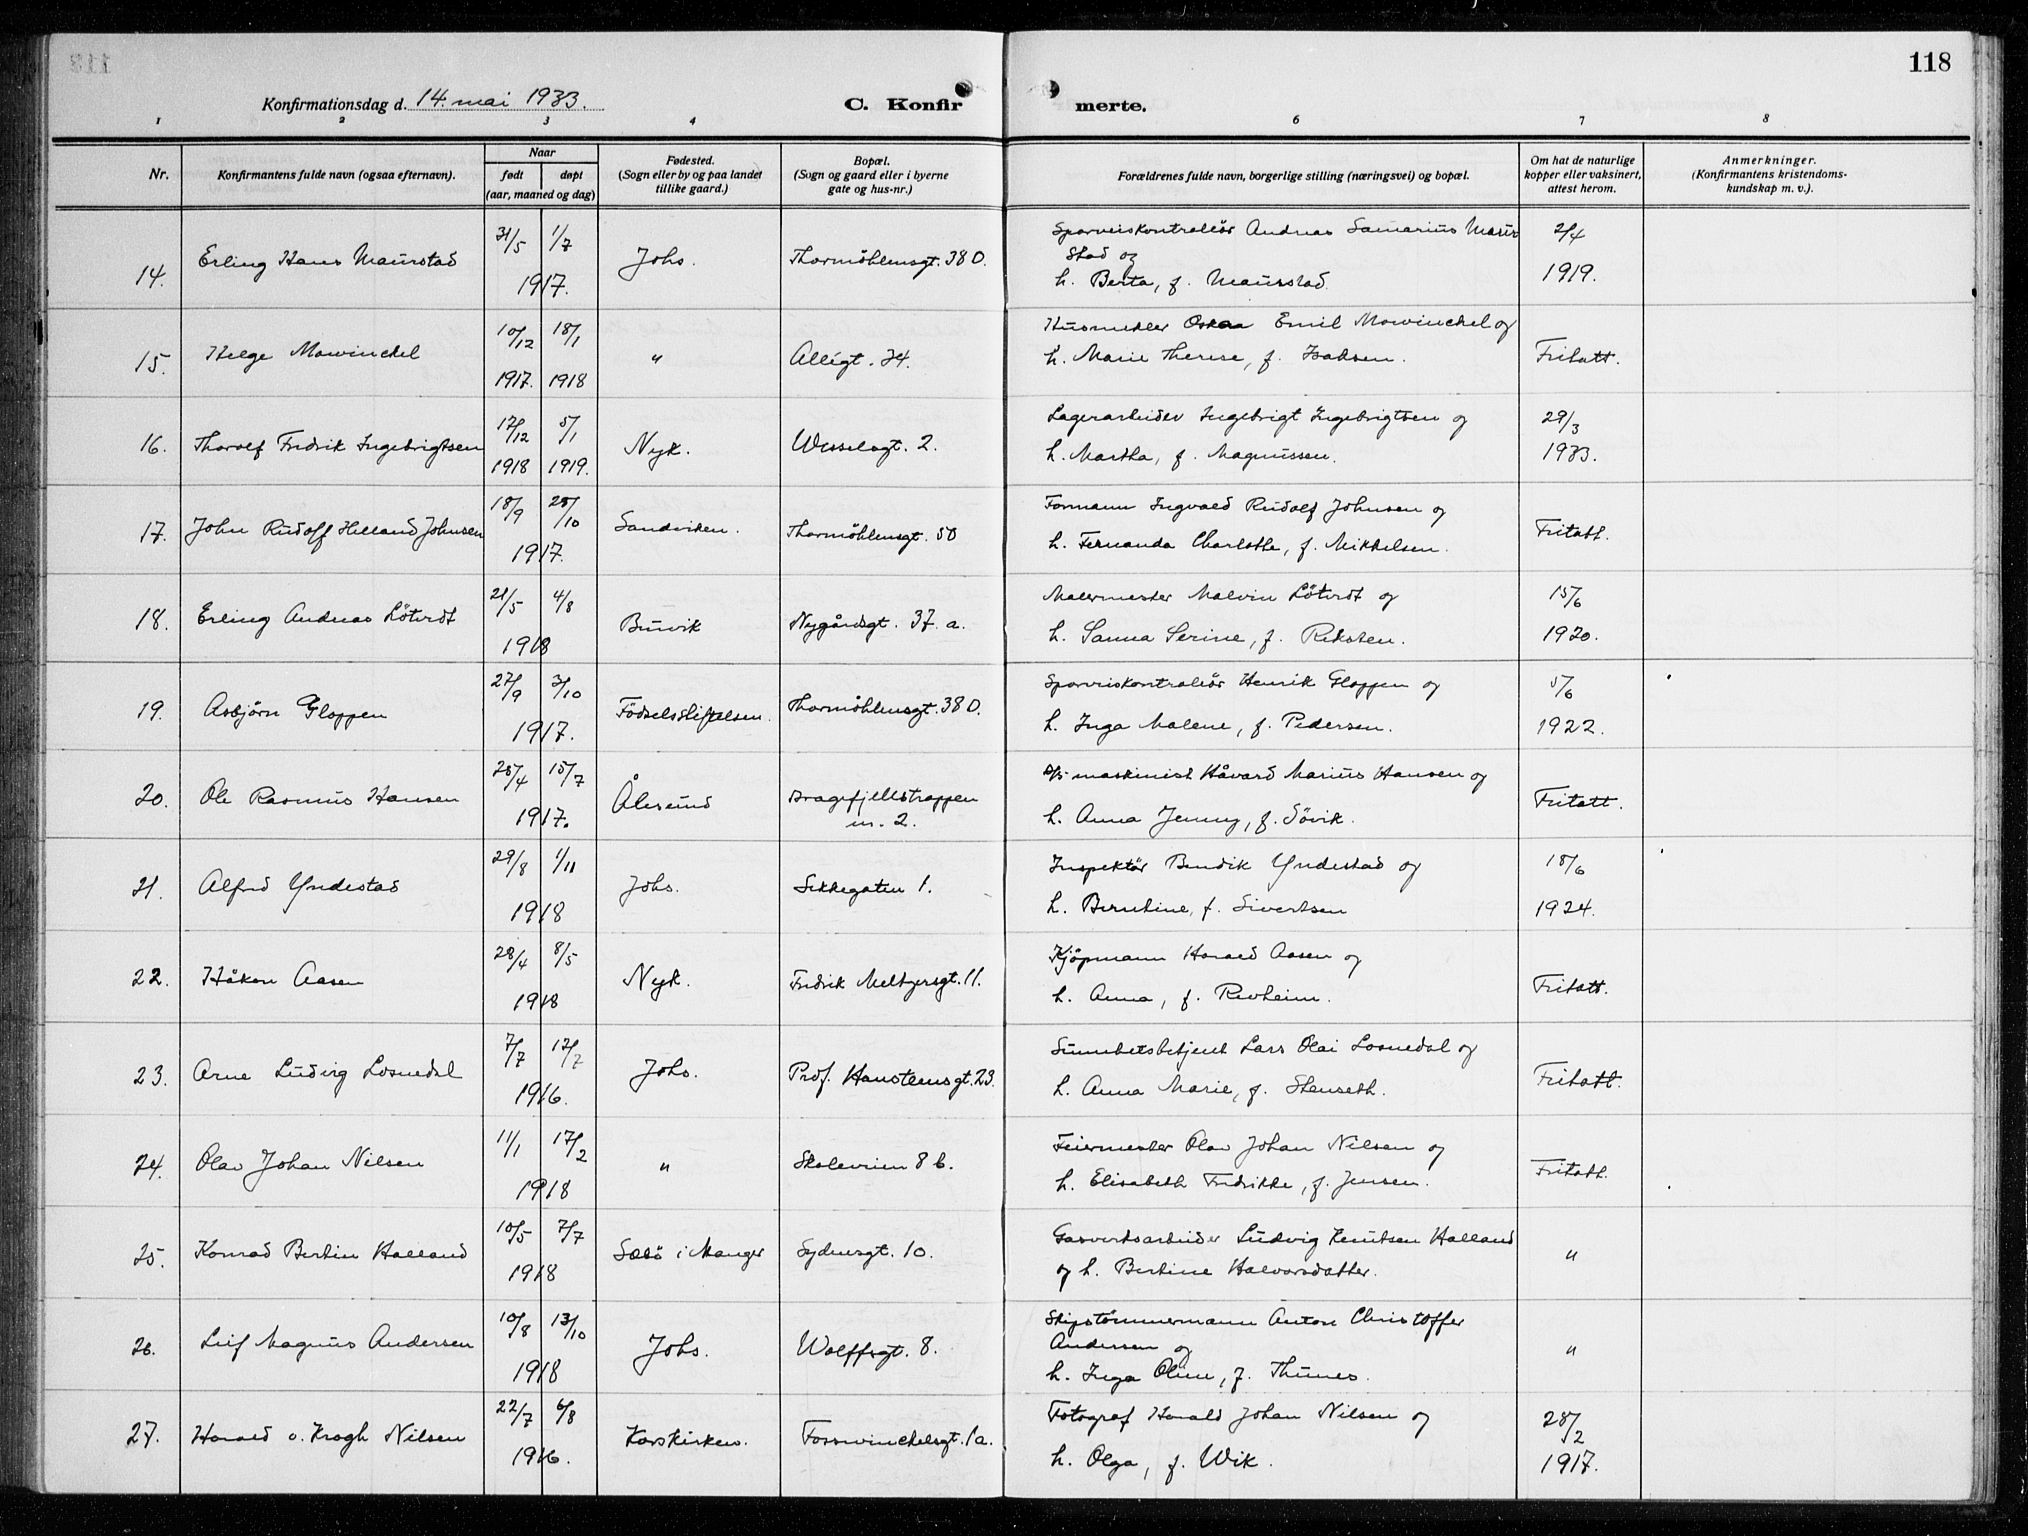 118
Konfirmationsdag d. 14. mai 1933.
C. Konfir merte.
1 2 3 4 6 7 8
Nr.
Konfirmantens fulde navn (ogsaa efternavn).
Naar
født døpt
(aar, maaned og dag)
Fødested.
(Sogn eller by og paa landet
tillike gaard.)
Bopæl.
(Sogn og gaard eller i byerne
gate og hus-nr.)
Forældrenes fulde navn, borgerlige stilling (næringsvei) og bopæl.
Om hat de naturlige
kopper eller vaksinert,
attest herom.
Anmerkninger.
(Konfirmantens kristendoms-
kundskap m. v.).
14. Erling Hans Maurstad 31/5 1/7 1917. Johs. Thormöhlensgt. 38 D.
Sporveiskontrollör Andreas Samarius Maur
stad og
h. Berta, f. Maurstad.
2/4
1919.
15. Helge Mowinckel 10/12 18/1 1917. 1918 " Alleigt. 24.
Husmekler Emil Mowinckel og
h. Marie Therese, f. Isaksen.
Fritatt.
16. Thoralf Fredrik Ingebrigtsen 12/12 5/1 1918 1919. Nyk. Wesselsgt. 2.
Lagerarbeider Ingebrigt Ingebrigtsen og
h. Martha, f. Magnussen.
29/3
1933.
17. John Rudolf Helland Johnsen 18/9 28/10 1917. Sandviken. Thormöhlensgt. 50
Formann Ingvald Rudolf Johnsen og
h. Fernanda Charlotte, f. Mikkelsen.
Fritatt.
18. Erling Andreas Lötvedt 21/5 4/8 1918 Buvik Nygårdsgt. 37 a.
Malermester Malvin Lötvedt og
h. Sanna Serine, f. Riksten.
15/6
1920.
19. Asbjörn Gloppen 27/9 3/10 1917. Födselsstiftelsen. Thormöhlensgt. 38 D.
Sporveiskontrollör Henrik Gloppen og
h. Inga Malene, f. Pedersen.
5/6
1922.
20. Ole Rasmus Hansen 25/4 15/7 1917. Ålesund Dragefjellstrappen
nr. 2.
D/S maskinist Håvard Marius Hansen og
h. Anna Jenny, f. Sövik.
Fritatt.
21. Alfred Yndestad 29/8 1/11 1918 Johs. Sekkegaten 1.
Inspektör Bendik Yndestad og
h. Berntine, f. Sivertsen
18/6
1924.
22. Håkon Aasen 28/4 8/5 1918 Nyk. Fredrik Meltzersgt. 11.
Kjöpmann Harald Aasen og
h. Anna, f. Revheim.
Fritatt.
23. Arne Ludvig Losnedal 7/7 12/7 1916. Johs. Prof. Hansteensgt. 23.
Sunnhetsbetjent Lars Olai Losnedal og
h. Anna Marie, f. Stenseth.
Fritatt.
24. Olav Johan Nilsen 11/1 17/2 1918 " Skoleveien 8 b.
Feiermester Olav Johan Nilsen og
h. Elisabeth Fredrikke, f. Jensen.
Fritatt.
25. Konrad Bertin Halland 10/5 7/7 1918 Sæbö i Manger Sydnesgt. 10.
Gasverksarbeider Ludvig Knutsen Halland
og h. Bertine Halvorsdatter.
"
26. Leif Magnus Andersen 10/8 13/10 1918 Johs. Wolffsgt. 8.
Skipstömmermann Anton Christoffer
Andersen og
h. Inga Oline, f. Thunes.
"
27. Harald v. Krogh Nilsen 22/7 6/8 1916. Korskirken. Fosswinckelsgt. 1a.
Fotograf Harald Johan Nilsen og
h. Olga, f. Wik.
28/2
1917.